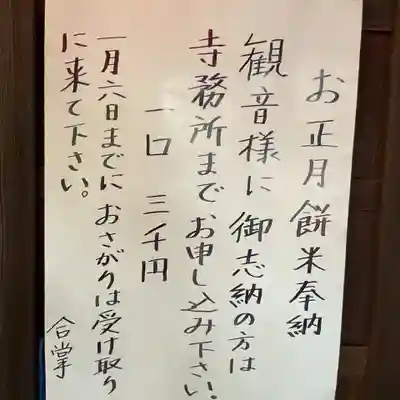 お正月餅米奉納
観音様に御志納の方は
寺務所までお申し込み下さい。
一口 三千円
一月六日までにおさがりは受け取り
に来て下さい。
合掌